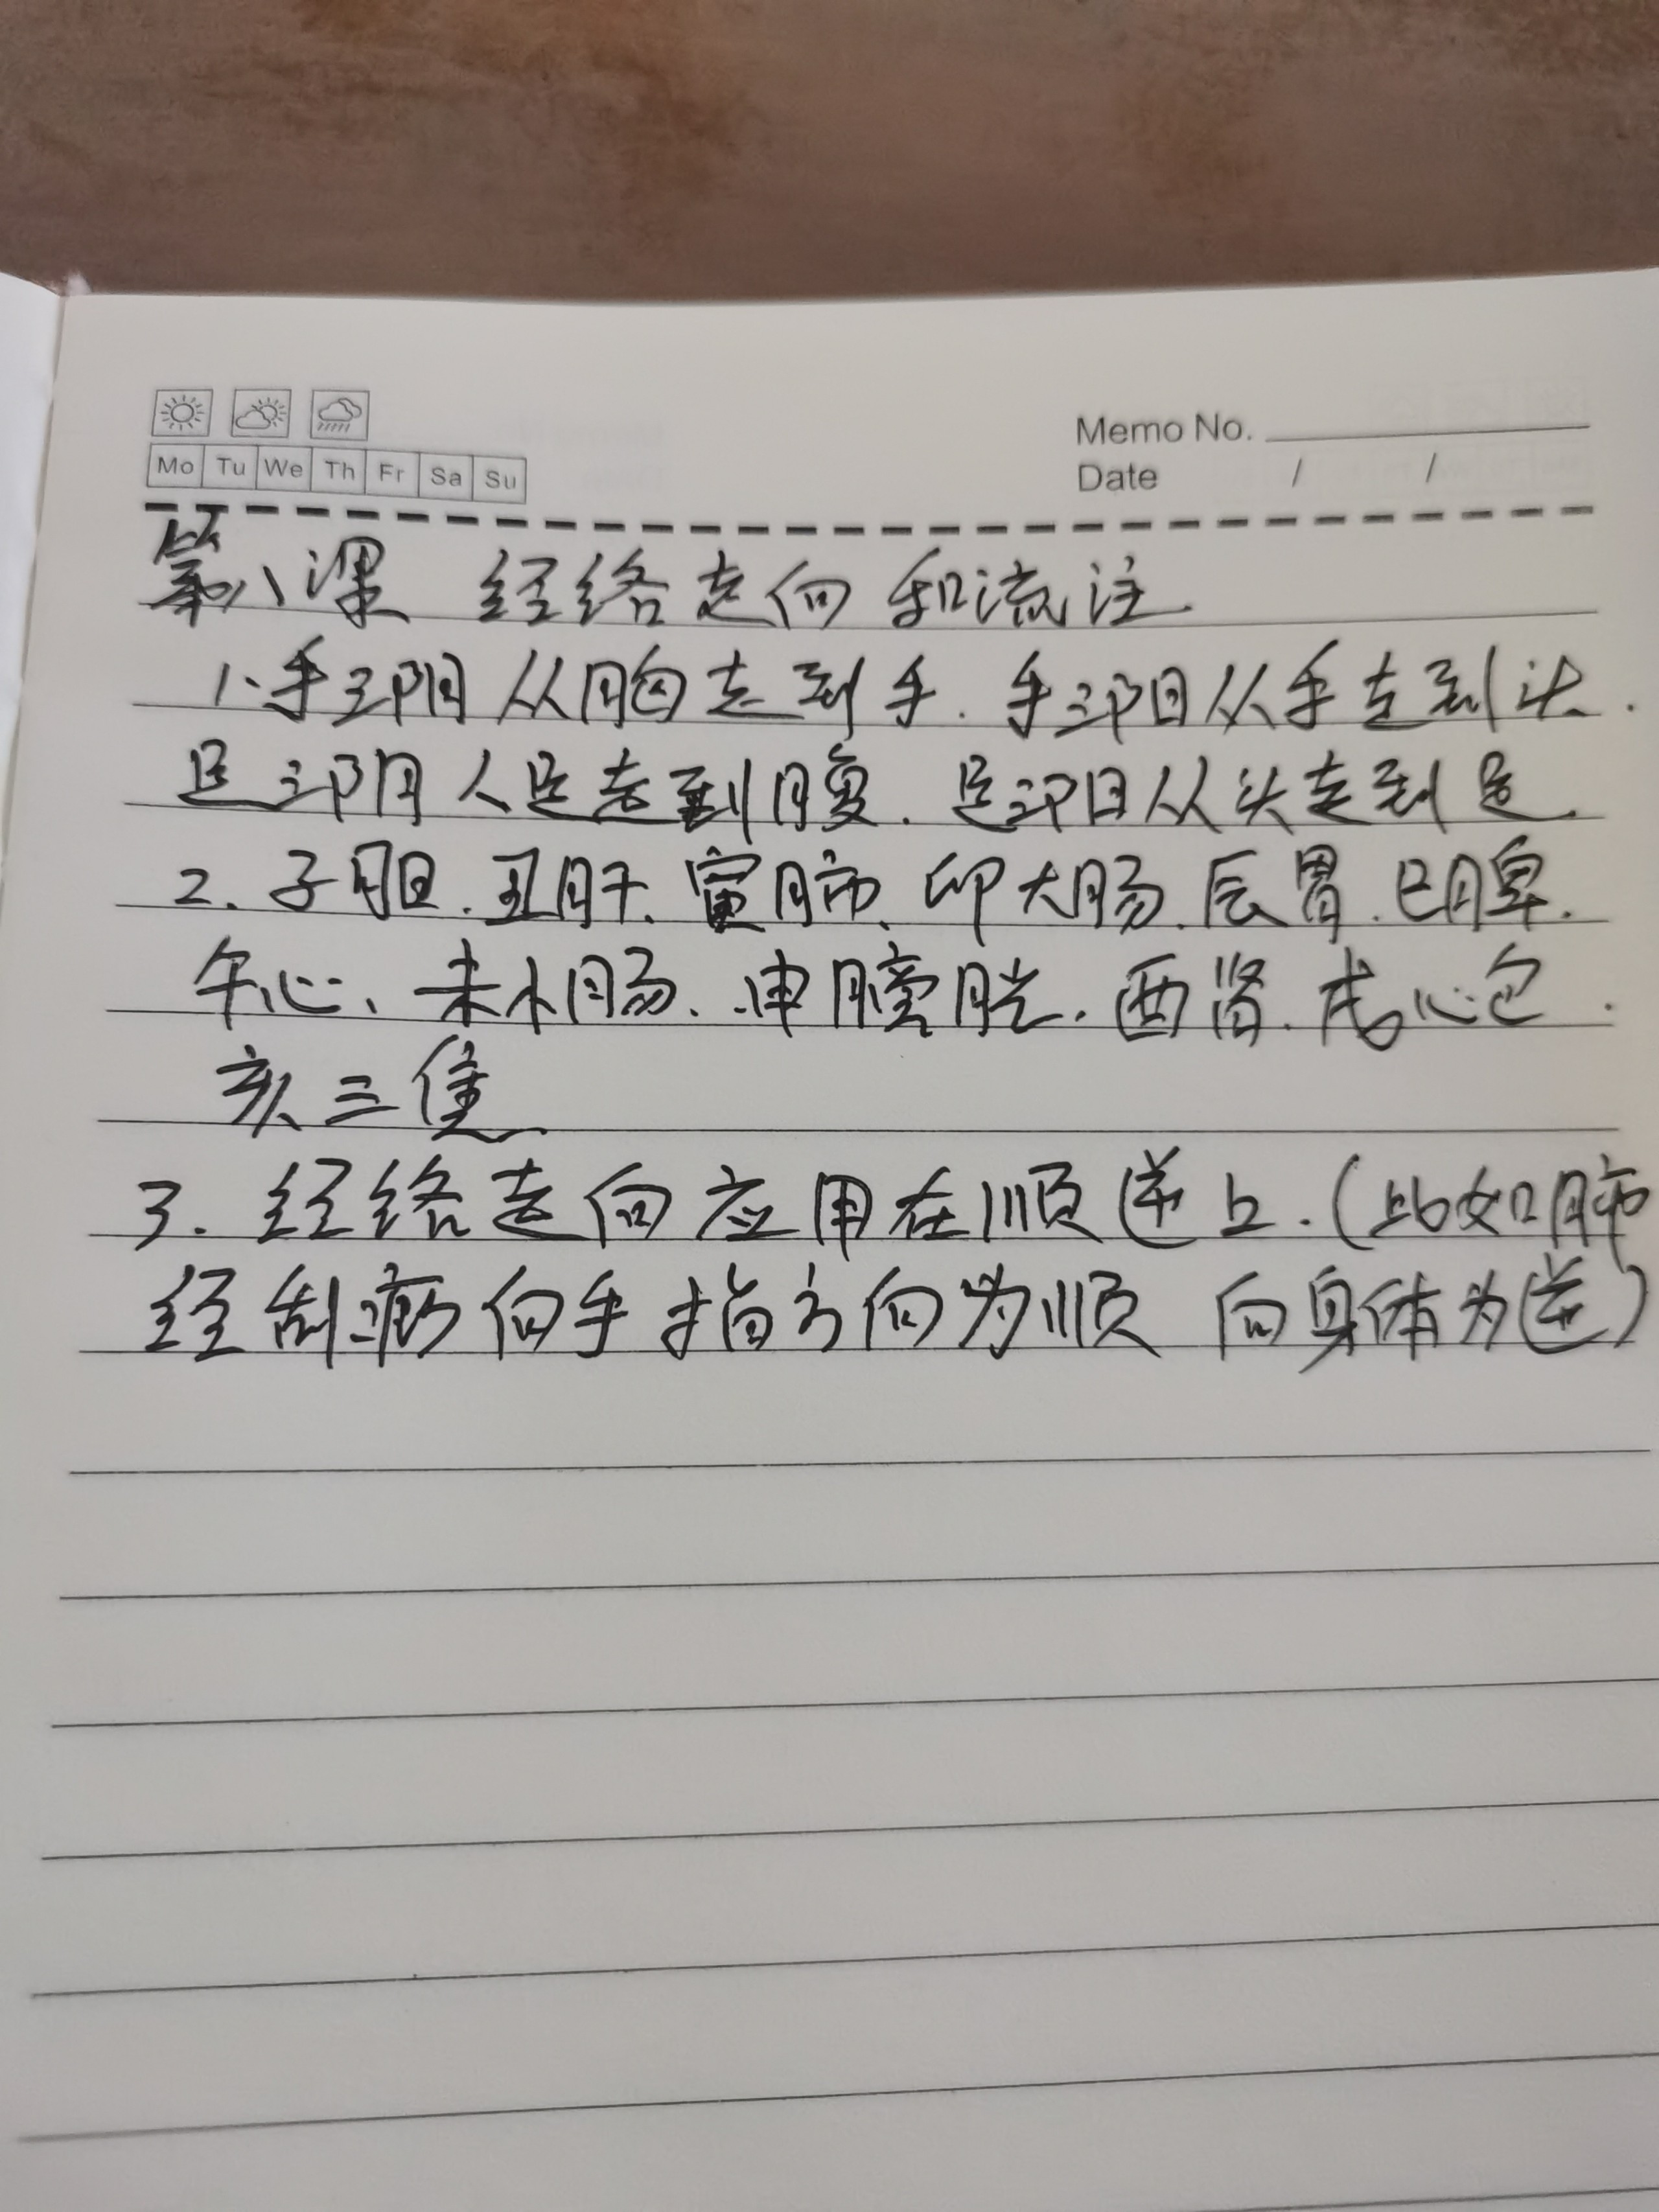 Memo No.
Mo Tu We Th Fr Sa Su
Date / /
第八课 经络走向和流注
1、手三阴从胸走到手.手三阳从手走到头.
足三阴人足走到腹.足三阳从头走到足.
2.子胆.丑肝、寅肺、卯大肠.辰胃.巳脾.
午心、未小肠、申膀胱.酉肾.戌心包.
亥三焦
3.经络走向应用在顺逆上.(比如肺
经刮痧向手指方向为顺 向身体为逆)